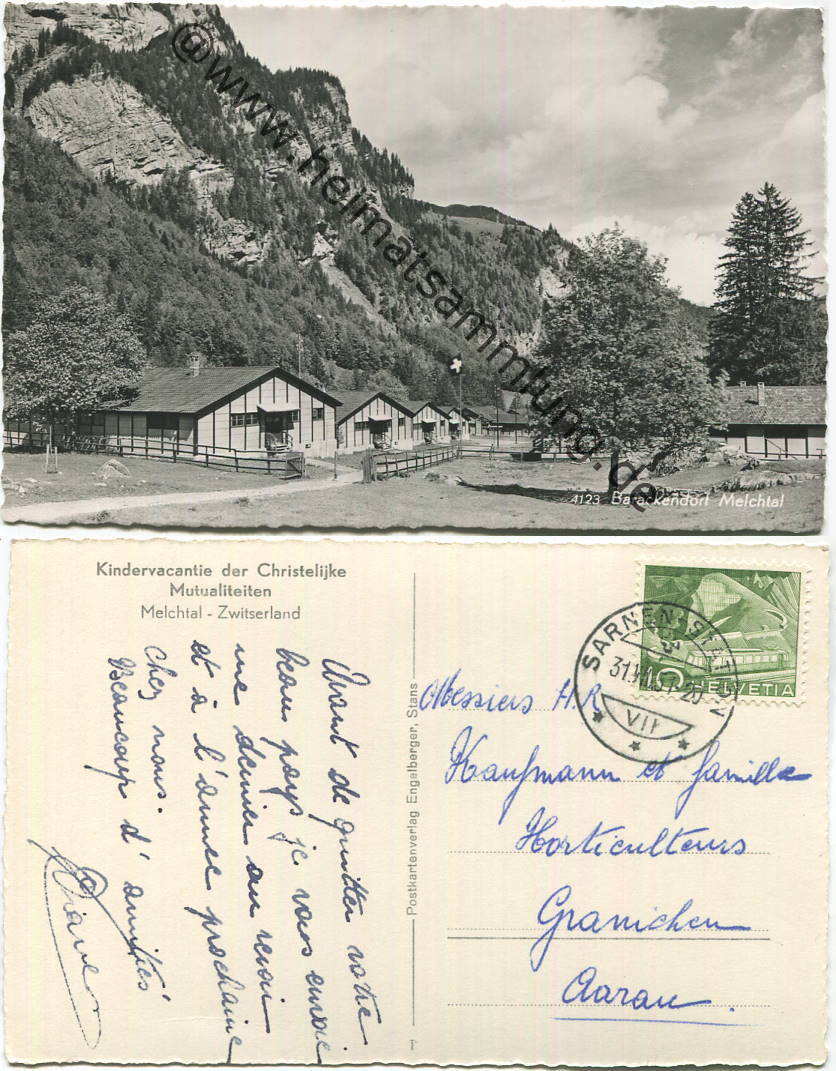 @www.heimatsammlung.de
4123 Barackendorf Melchtal
Kindervacantie der Christelijke
Mutualiteiten
Melchtal - Zwitserland
Avant de quitter votre
beau pays je vous envoie
une dernier au revoir
et à l'année prochaine
chez nous.
Beaucoup d'amitiés
Postkartenverlag Engelberger, Stans
SARNEN
VII
HELVETIA
Messieurs H.R
Kaufmann et famille
Horticulteurs
Granichen
Aarau.